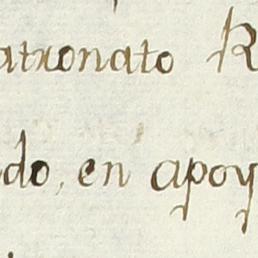 atronato R
do, en apoy